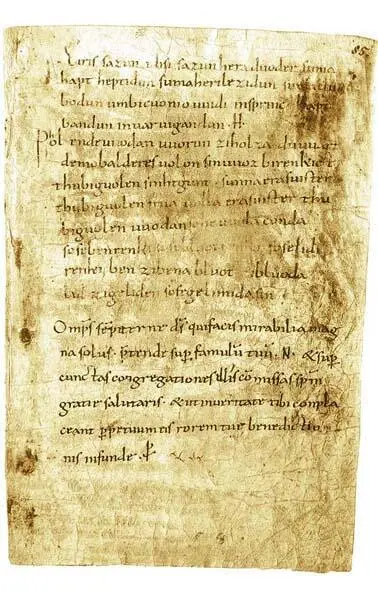 85
Eiris sazun idisi sazun hera duoder suma
hapt heptidun suma heri lezidun suma clu
bodun umbi cuonio uuidi insprinc hapt
bandun inuar uigandun · H ·
Phol ende uuodan uuorun zi holza du uuart
demo balderes uolon sin uuoz birenkict
thu biguolen sinhtgunt · sunna era suister
thu biguolen friia uolla era suister thu
biguolen uuodan so he uuola conda
sose benrenki sose bluotrenki sose lidi
renki ben zi bena bluot zi bluoda
lid zi geliden sose gelimida sin
Omps sempiterne ds qui facis mirabilia mag
na solus · ptende sup famulu tuu · N · & sup
cunctas congregationes illis comissas spm
gratie salutaris · & ut in ueritate tibi compla
ceant ppetuum eis rorem tue benedictio
nis infunde ·